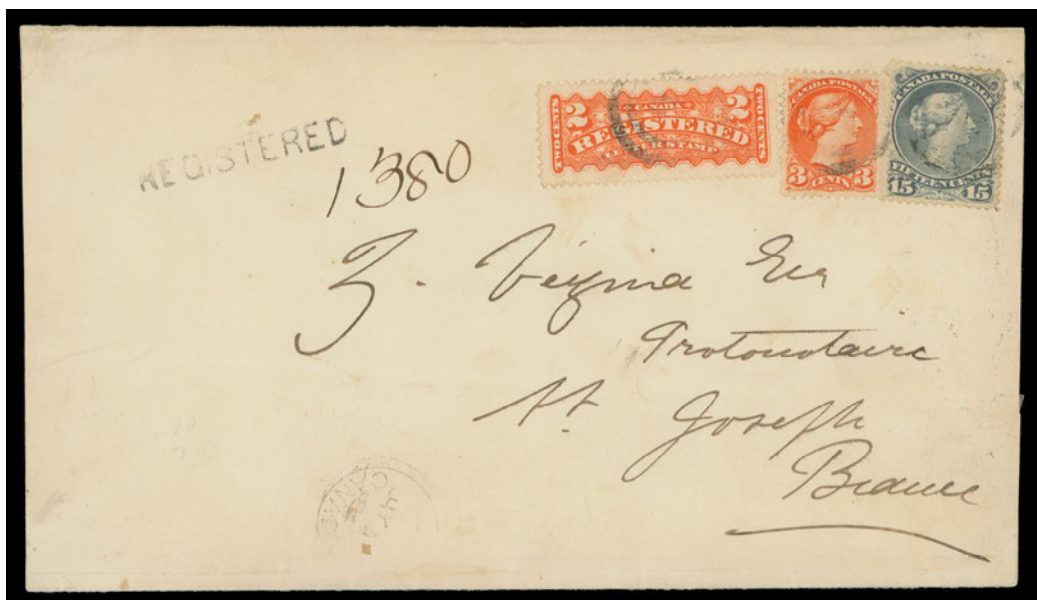 REGISTERED
1380
2 CANADA 2
TWO CENTS REGISTERED TWO CENTS
LETTER STAMP
CANADA POSTAGE
3 CENTS 3
CANADA POSTAGE
FIFTEEN CENTS
15 15
Z. Vézina Esr
Protonotaire
St. Joseph
Beauce